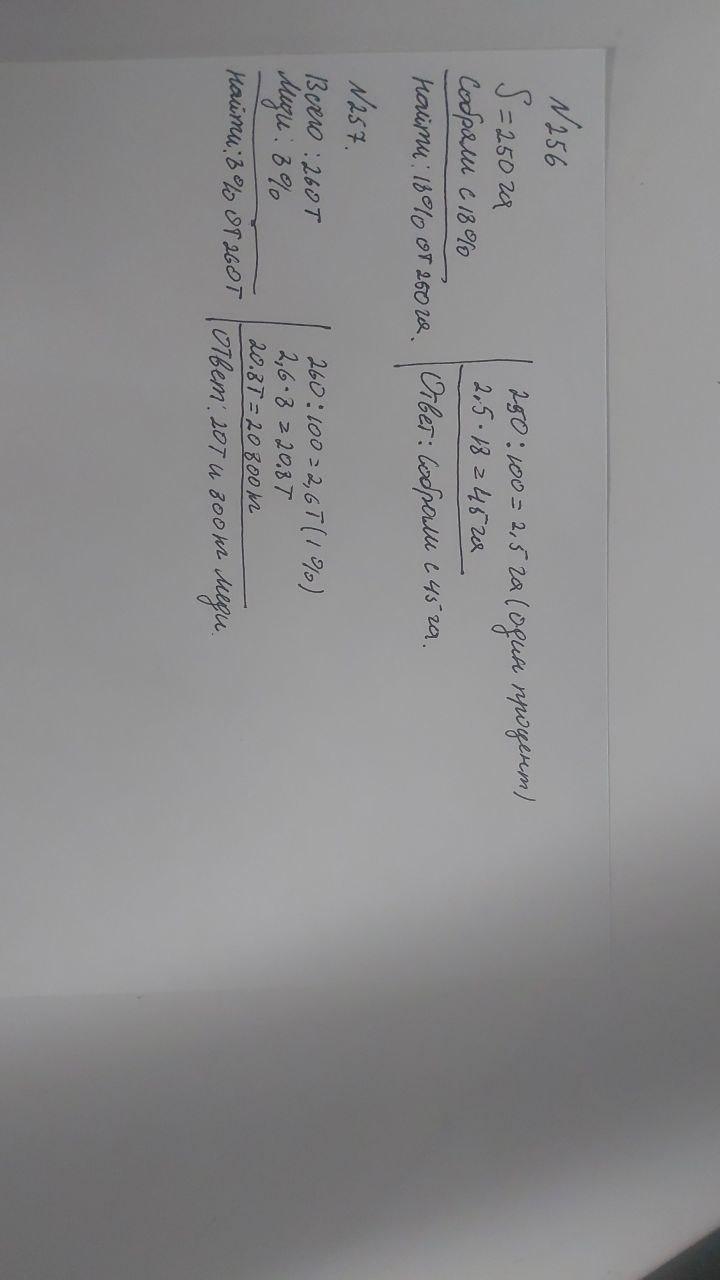 N256
S = 250 га
Собрали с 18%
Найти: 18% от 250 га.
250 : 100 = 2,5 га (один процент)
2,5 · 18 = 45 га
Ответ: Собрали с 45 га.
N257.
Всего : 260т
Меди : 8%
Найти: 8% от 260т
260 : 100 = 2,6т (1%)
2,6 · 8 = 20.8т
20.8т = 20800кг
Ответ: 20т и 800кг меди.